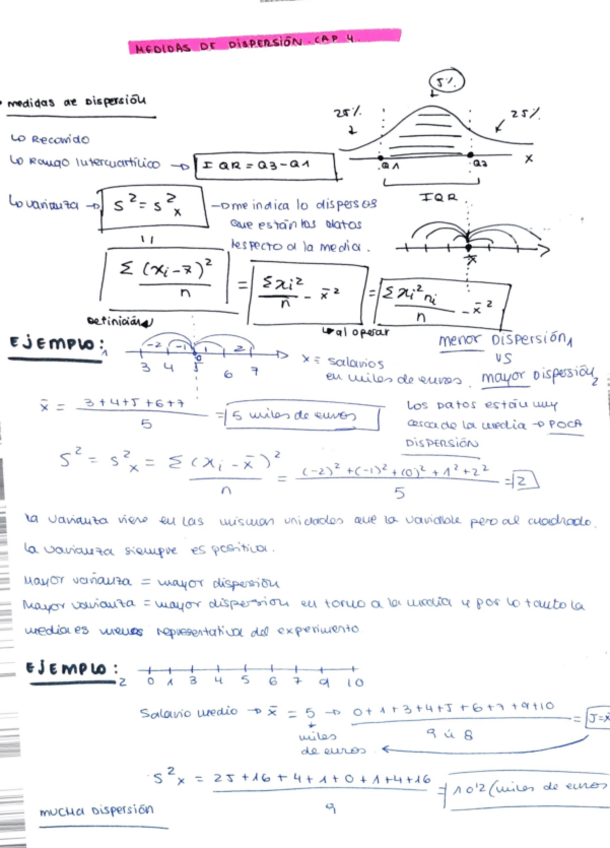 MEDIDAS DE DISPERSIÓN. CAP 4.
medidas de Dispersión
↳ Recorrido
↳ Rango Intercuartílico → IQR = Q3 - Q1
5%
25%
25%
Q1
Q3
X
IQR
↳ varianza → S² = S²x
→ me indica lo dispersos
que están los datos
respecto a la media.
x̄
=
Σ (xi - x̄)² / n = Σxi² / n - x̄² = Σxi² ni / n - x̄²
Definición
↳ al operar
EJEMPLO: 1
-2 -1 0 1 2
3 4 5 6 7
x = salarios
en miles de euros.
menor DISPERSIÓN 1
VS
mayor Dispersión 2
x̄ = 3+4+5+6+7 / 5 = 5 miles de euros
Los Datos están muy
cerca de la media → POCA
DISPERSIÓN
S² = S²x = Σ (xi - x̄)² / n = (-2)² + (-1)² + (0)² + 1² + 2² / 5 = 2
La varianza viene en las mismas unidades que la variable pero al cuadrado.
La varianza siempre es positiva.
Mayor varianza = mayor dispersión
Mayor varianza = mayor dispersión en torno a la media y por lo tanto la
media es menos representativa del experimento
EJEMPLO: 2
0 1 3 4 5 6 7 9 10
Salario medio → x̄ = 5 → 0+1+3+4+5+6+7+9+10 / 9 ú 8 = 5 = x̄
miles
de euros
S²x = 25+16+4+1+0+1+4+16 / 9 = 10'2 (miles de euros
MUCHA DISPERSIÓN